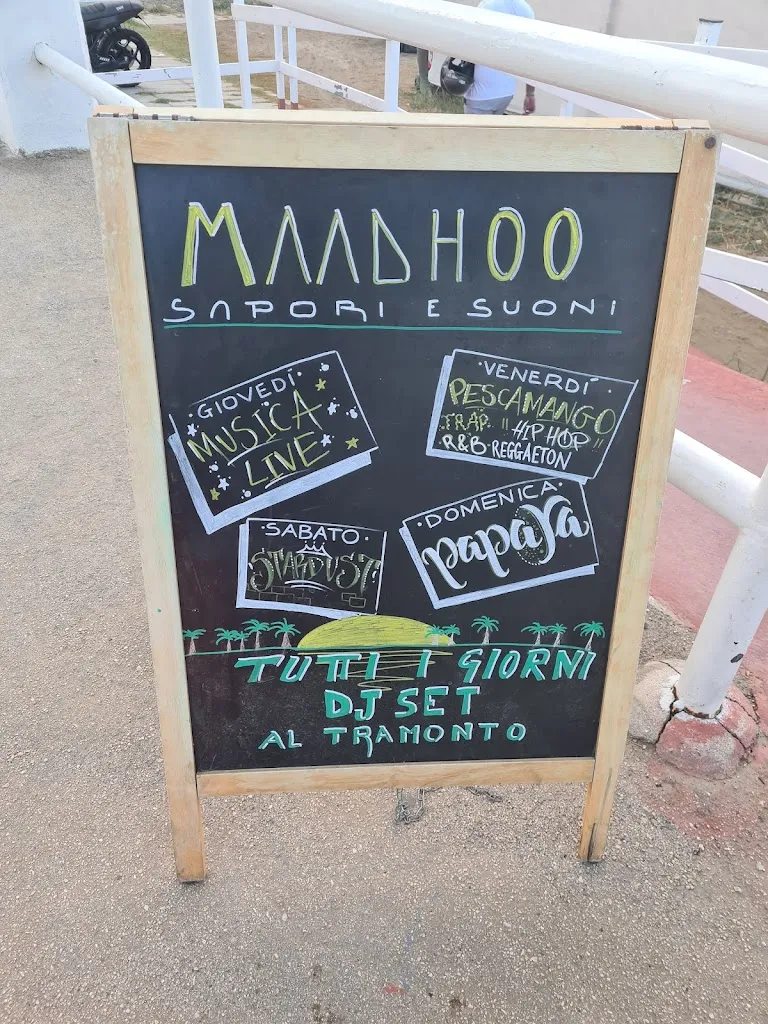 MAADHOO
SAPORI E SUONI
GIOVEDÍ
MUSICA
LIVE
VENERDÍ
PESCAMANGO
TRAP "HIP HOP"
R&B-REGGAETON
·SABATO·
STARDUST
·DOMENICA·
papaya
TUTTI I GIORNI
DJ SET
AL TRAMONTO